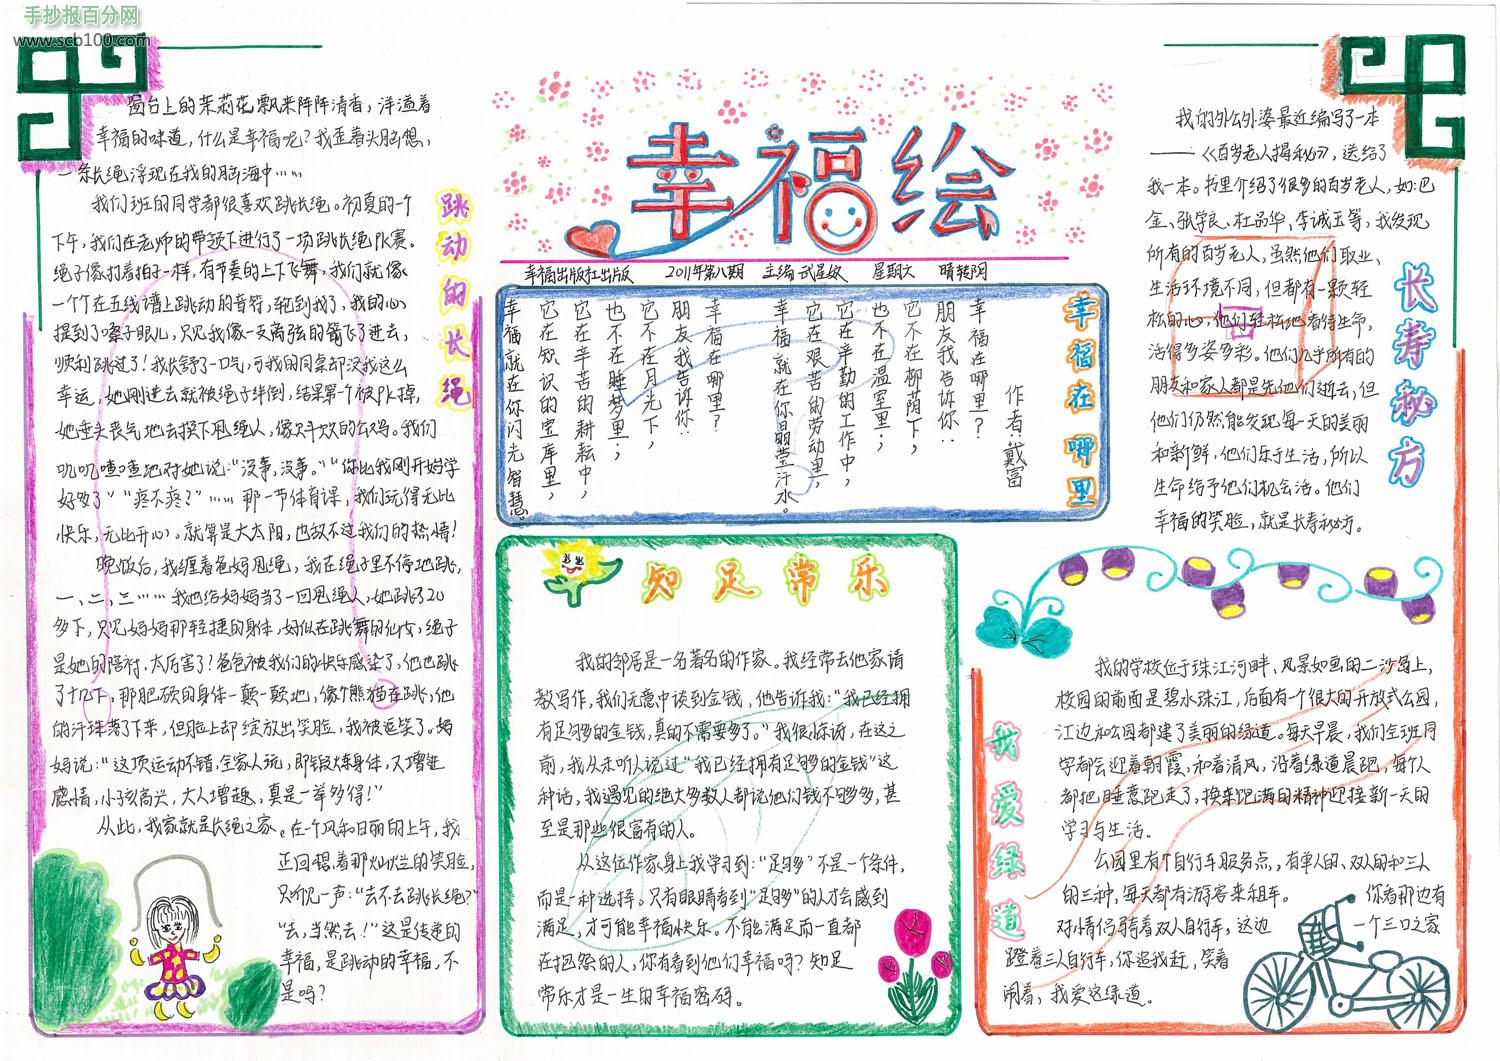 手抄报百分网
www.scb100.com
幸福绘
幸福出版社出版 2011年第八期 主编 武星妤 星期六 晴转阴
跳动的长绳
窗台上的茉莉花飘来阵阵清香，洋溢着
幸福的味道，什么是幸福呢？我歪着头脑想，
一条长绳浮现在我的脑海中……
我们班的同学都很喜欢跳长绳。初夏的一个
下午，我们在老师的带领下进行了一场跳长绳PK赛。
绳子像打着拍子一样，有节奏的上下飞舞，我们就像
一个个在五线谱上跳动的音符，轮到我了，我的心
提到了嗓子眼儿，只见我像一支离弦的箭飞了进去，
顺利跳过了！我长舒了一口气，可我的同桌却没我这么
幸运，她刚进去就被绳子绊倒，结果第一个被PK掉，
她垂头丧气地去换下甩绳人，像只斗败的公鸡。我们
叽叽喳喳地对她说：“没事，没事。”“你比我刚开始学
好多了”“疼不疼？”……那一节体育课，我们玩得无比
快乐，无比开心。就算是大太阳，也敌不过我们的热情！
晚饭后，我缠着爸妈甩绳，我在绳子里不停地跳，
一、二、三……我也给妈妈当了一回甩绳人，她跳了20
多下，只见妈妈那轻捷的身体，好似在跳舞的仙女，绳子
是她的陪衬，太厉害了！爸爸被我们的快乐感染了，他也跳
了十几下，那肥硕的身体一颠一颠地，像个熊猫在跳，他
的汗珠落下来，但脸上却绽放出笑脸，我被逗笑了。妈
妈说：“这项运动不错，全家人玩，即锻炼身体，又增进
感情，小孩高兴，大人增趣，真是一举多得！”
从此，我家就是长绳之家。在一个风和日丽的上午，我
正回想着那灿烂的笑脸，
只听见一声：“去不去跳长绳？”
“去，当然去！”这是传递的
幸福，是跳动的幸福，不
是吗？
幸福在哪里
作者：戴富
幸福在哪里？
朋友我告诉你：
它不在柳荫下，
也不在温室里；
它在辛勤的工作中，
它在艰苦的劳动里，
幸福就在你晶莹汗水。
幸福在哪里？
朋友我告诉你：
它不在月光下，
也不在睡梦里；
它在辛苦的耕耘中，
它在知识的宝库里，
幸福就在你闪光智慧。
知足常乐
我的邻居是一名著名的作家。我经常去他家请
教写作，我们无意中谈到金钱，他告诉我：“我已经拥
有足够的金钱，真的不需要多了。”我很惊讶，在这之
前，我从未听人说过“我已经拥有足够的金钱”这
种话，我遇见的绝大多数人都说他们钱不够多，甚
至是那些很富有的人。
从这位作家身上我学习到：“足够”不是一个条件，
而是一种选择。只有眼睛看到“足够”的人才会感到
满足，才可能幸福快乐。不能满足而一直都
在抱怨的人，你有看到他们幸福吗？知足
常乐才是一生的幸福密码。
长寿秘方
我的外公外婆最近编写了一本
——《百岁老人揭秘》，送给了
我一本。书里介绍了很多的百岁老人，如：巴
金、张学良、杜品华、李诚玉等，我发现，
所有的百岁老人，虽然他们职业、
生活环境不同，但都有一颗轻
松的心，他们轻松地看待生命，
活得多姿多彩。他们几乎所有的
朋友和家人都是先他们逝去，但
他们仍然能发现每一天的美丽
和新鲜，他们乐于生活，所以
生命给予他们机会活。他们
幸福的笑脸，就是长寿秘方。
我爱绿道
我的学校位于珠江河畔，风景如画的二沙岛上，
校园的前面是碧水珠江，后面有一个很大的开放式公园，
江边和公园都建了美丽的绿道。每天早晨，我们全班同
学都会迎着朝霞，和着清风，沿着绿道晨跑，每个人
都把睡意跑走了，换来饱满的精神迎接新一天的
学习与生活。
公园里有个自行车服务点，有单人的、双人的和三人
的三种，每天都有游客来租车。 你看那边有
对情侣骑着双人自行车，这边 一个三口之家
蹬着三人自行车，你追我赶，笑着
闹着，我爱这绿道。